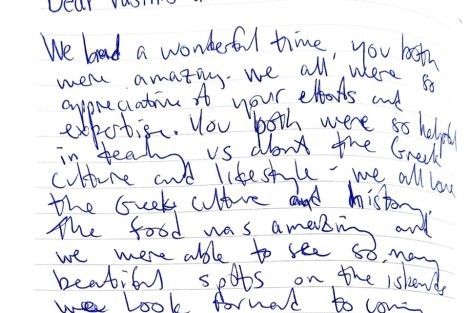 Dear
We had a wonderful time, you both
were amazing. We all were so
appreciative of your efforts and
expertise. You both were so helpful
in teaching us about the Greek
culture and lifestyle - we all love
the Greek culture and history,
the food was amazing and
we were able to see so many
beautiful spots on the islands
we look forward to coming